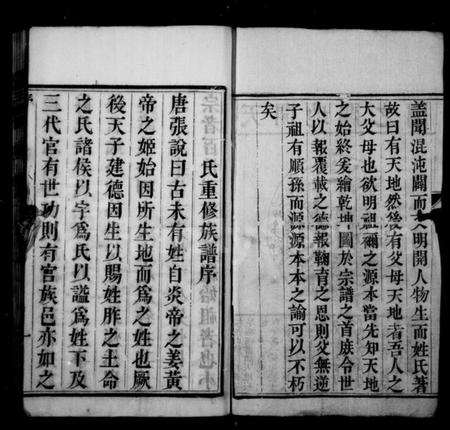 蓋聞混沌闢而文明開人物生而姓氏著
故曰有天地然後有父母天地者吾人之
大父母也欲明祖禰之源本當先知天地
之始終爰繪乾坤圖於宗譜之首庻令世
人以報覆載之德報鞠育之恩則父無逆
子祖有順孫而源源本本之諭可以不朽
矣
氏重修族譜序
唐張說曰古未有姓自炎帝之姜黃
帝之姬始因所生地而爲之姓也厥
後天子建德因生以賜姓胙之土命
之氏諸侯以字爲氏以謚爲姓下及
三代官有世功則有官族邑亦如之